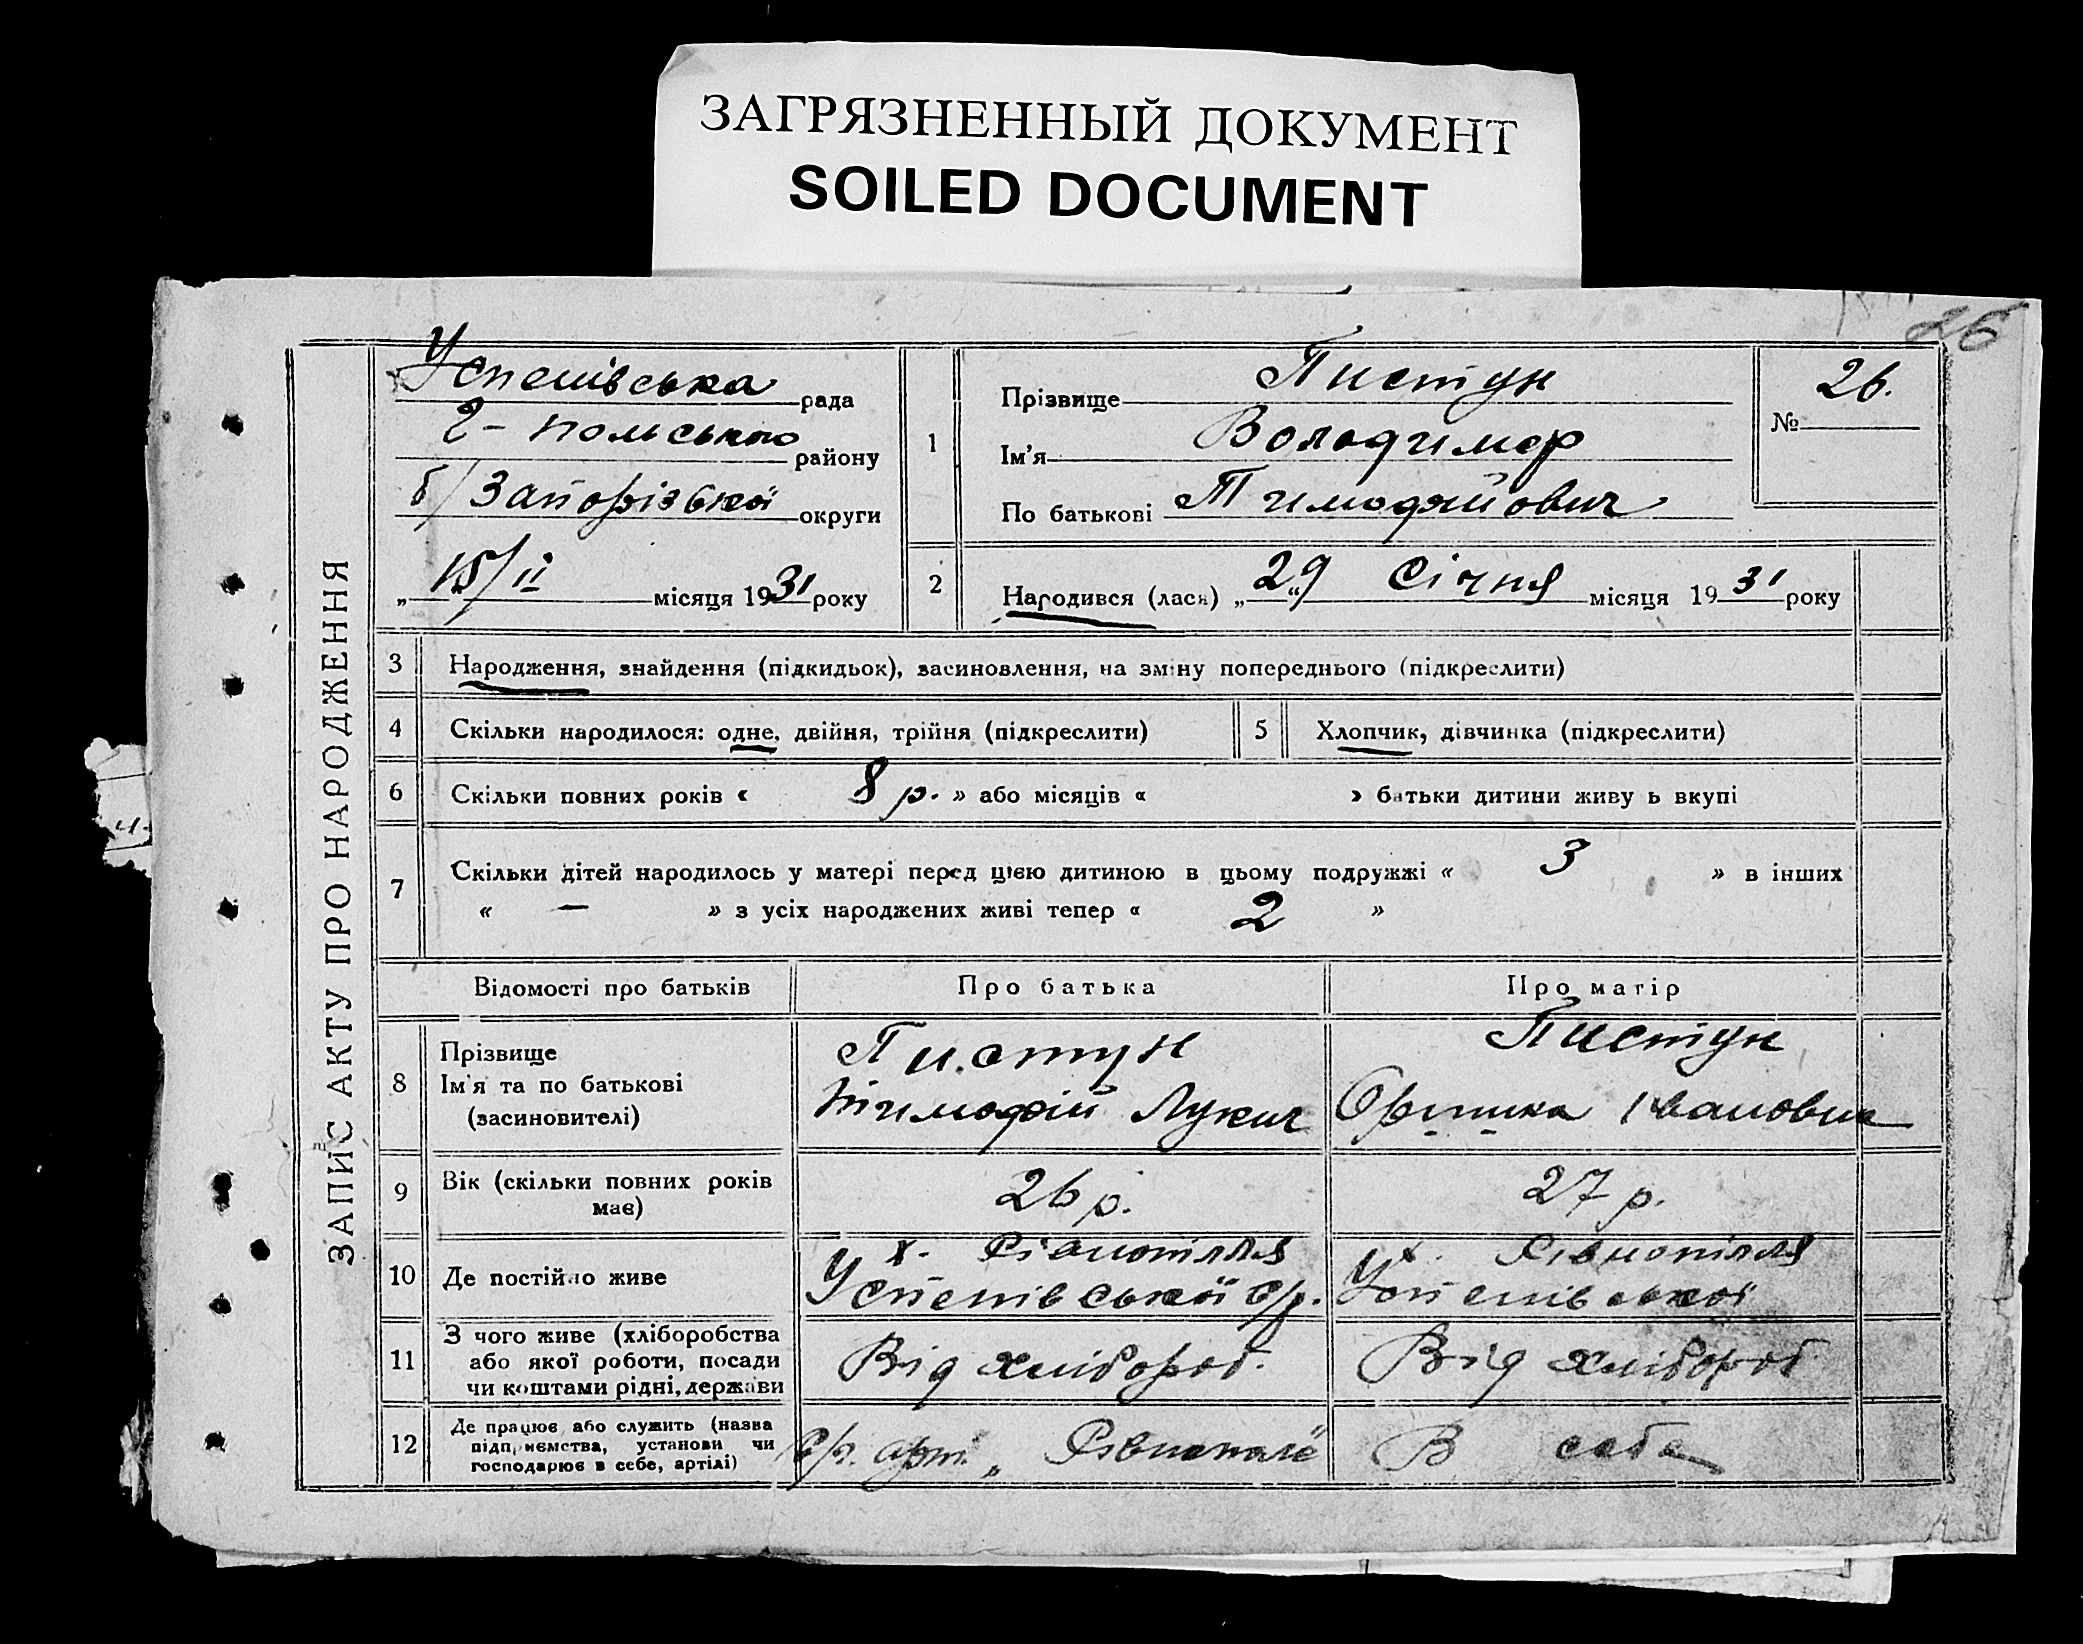 ЗАГРЯЗНЕННЫЙ ДОКУМЕНТ
SOILED DOCUMENT
26
ЗАПИС АКТУ ПРО НАРОДЖЕННЯ
Успенівська рада
Г-Польського району
б/Запорізької округи
„15/II місяця 1931 року
1
Прізвище Пистун
Ім'я Володимер
По батькові Тимофійович
№ 26.
2
Народився (лася) „29“ Січня місяця 1931 року
3 Народження, знайдення (підкидьок), засиновлення, на зміну попереднього (підкреслити)
4 Скільки народилося: одне, двійня, трійня (підкреслити)
5 Хлопчик, дівчинка (підкреслити)
6 Скільки повних років « 8 р. » або місяців « » батьки дитини живуть вкупі
7 Скільки дітей народилось у матері перед цією дитиною в цьому подружжі « 3 » в інших
« — » з усіх народжених живі тепер « 2 »
Відомості про батьків Про батька Про матір
8 Прізвище
Ім'я та по батькові
(засиновителі)
Пистун
Тимофій Лукич
Пистун
Оришка Івановна
9 Вік (скільки повних років
має)
26 р.
27 р.
10 Де постійно живе
х. Рівнопілля
Успенівської с/р.
х. Рівнопілля
Успенівської
11 З чого живе (хліборобства
або якої роботи, посади
чи коштами рідні, держави
Від хлібороб.
Від хлібороб.
12 Де працює або служить (назва
підприємства, установи чи
господарює в себе, артілі)
с/г. арт. „Рівнопілля
В себе